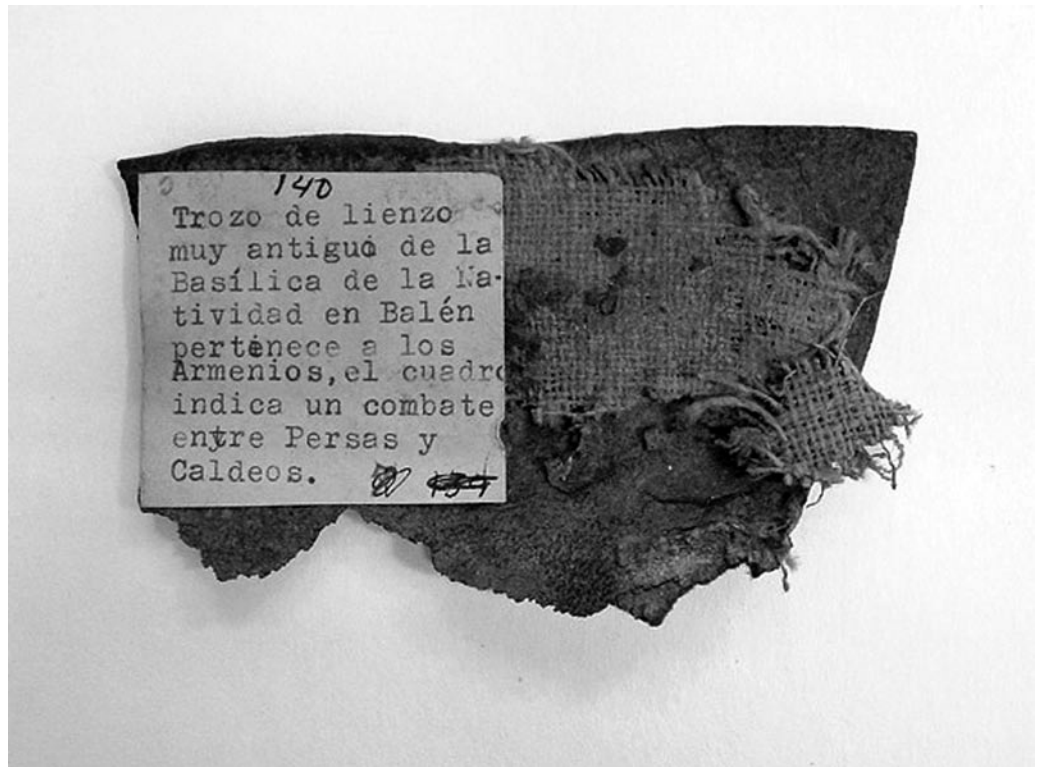 140
Trozo de lienzo
muy antiguo de la
Basílica de la Na-
tividad en Balén
pertenece a los
Armenios, el cuadro
indica un combate
entre Persas y
Caldeos.